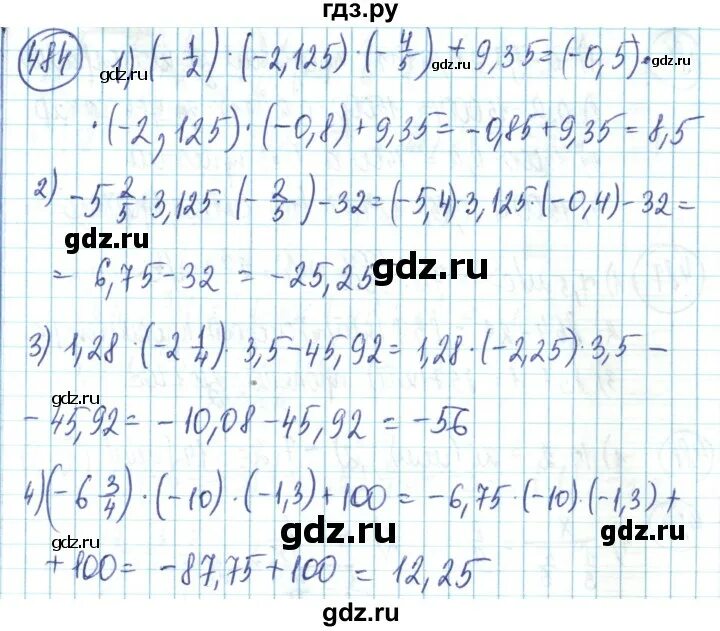 гдз.ру
484 1) (-1/2) · (-2,125) · (-4/5) + 9,35 = (-0,5) ·
· (-2,125) · (-0,8) + 9,35 = -0,85 + 9,35 = 8,5
2) -5 2/5 · 3,125 · (-2/5) - 32 = (-5,4) · 3,125 · (-0,4) - 32 =
= 6,75 - 32 = -25,25
3) 1,28 · (-2 1/4) · 3,5 - 45,92 = 1,28 · (-2,25) · 3,5 -
- 45,92 = -10,08 - 45,92 = -56
4) (-6 3/4) · (-10) · (-1,3) + 100 = -6,75 · (-10) · (-1,3) +
+ 100 = -87,75 + 100 = 12,25
gdz.ru
gdz.ru
gdz.ru
gdz.ru
gdz.ru
gdz.ru
gdz.ru
gdz.ru
gdz.ru
gdz.ru
gdz.ru
gdz.ru